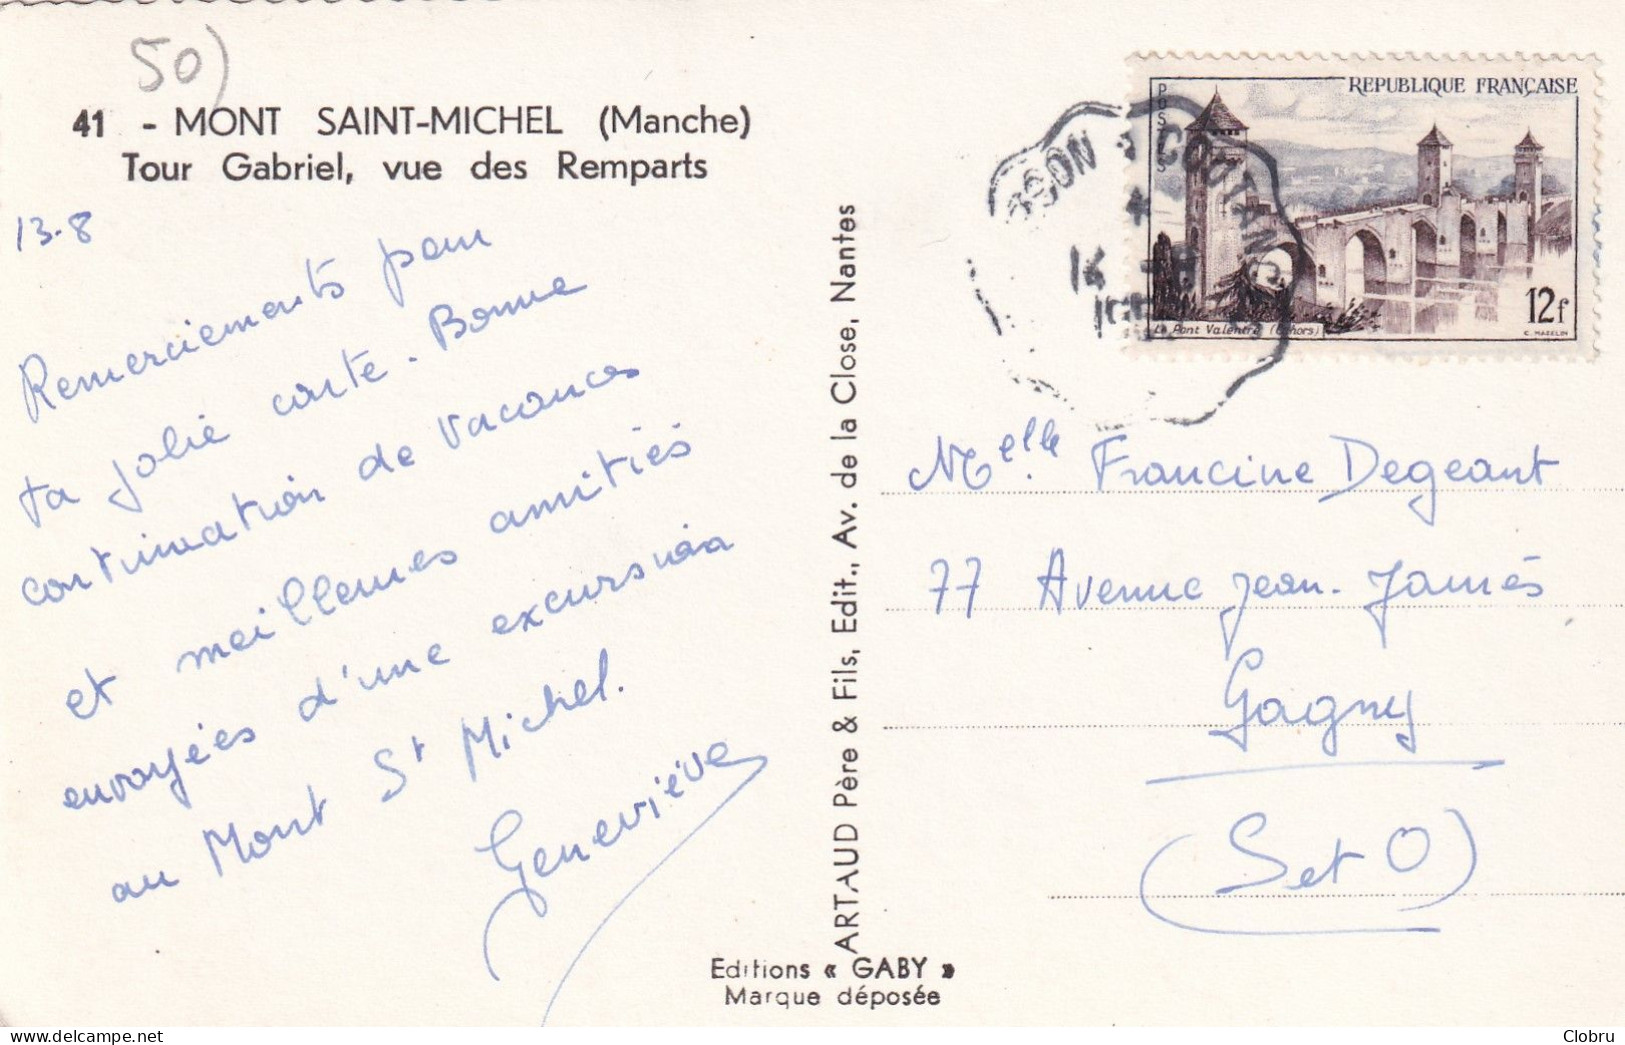 50)
41 - MONT SAINT-MICHEL (Manche)
Tour Gabriel, vue des Remparts
13.8
Remerciements pour
ta jolie carte. Bonne
continuation de vacances
et meilleures amitiés
envoyées d'une excursion
au Mont St Michel.
Geneviève
ARTAUD Père & Fils, Edit., Av. de la Close, Nantes
Editions « GABY »
Marque déposée
REPUBLIQUE FRANÇAISE
POSTES
12f
Le Pont Valentré (Cahors)
C. MAZELIN
COUTANC
14 -8
Melle Francine Degeant
77 Avenue Jean-Jaurès
Gagny
(S et O)
Clobru